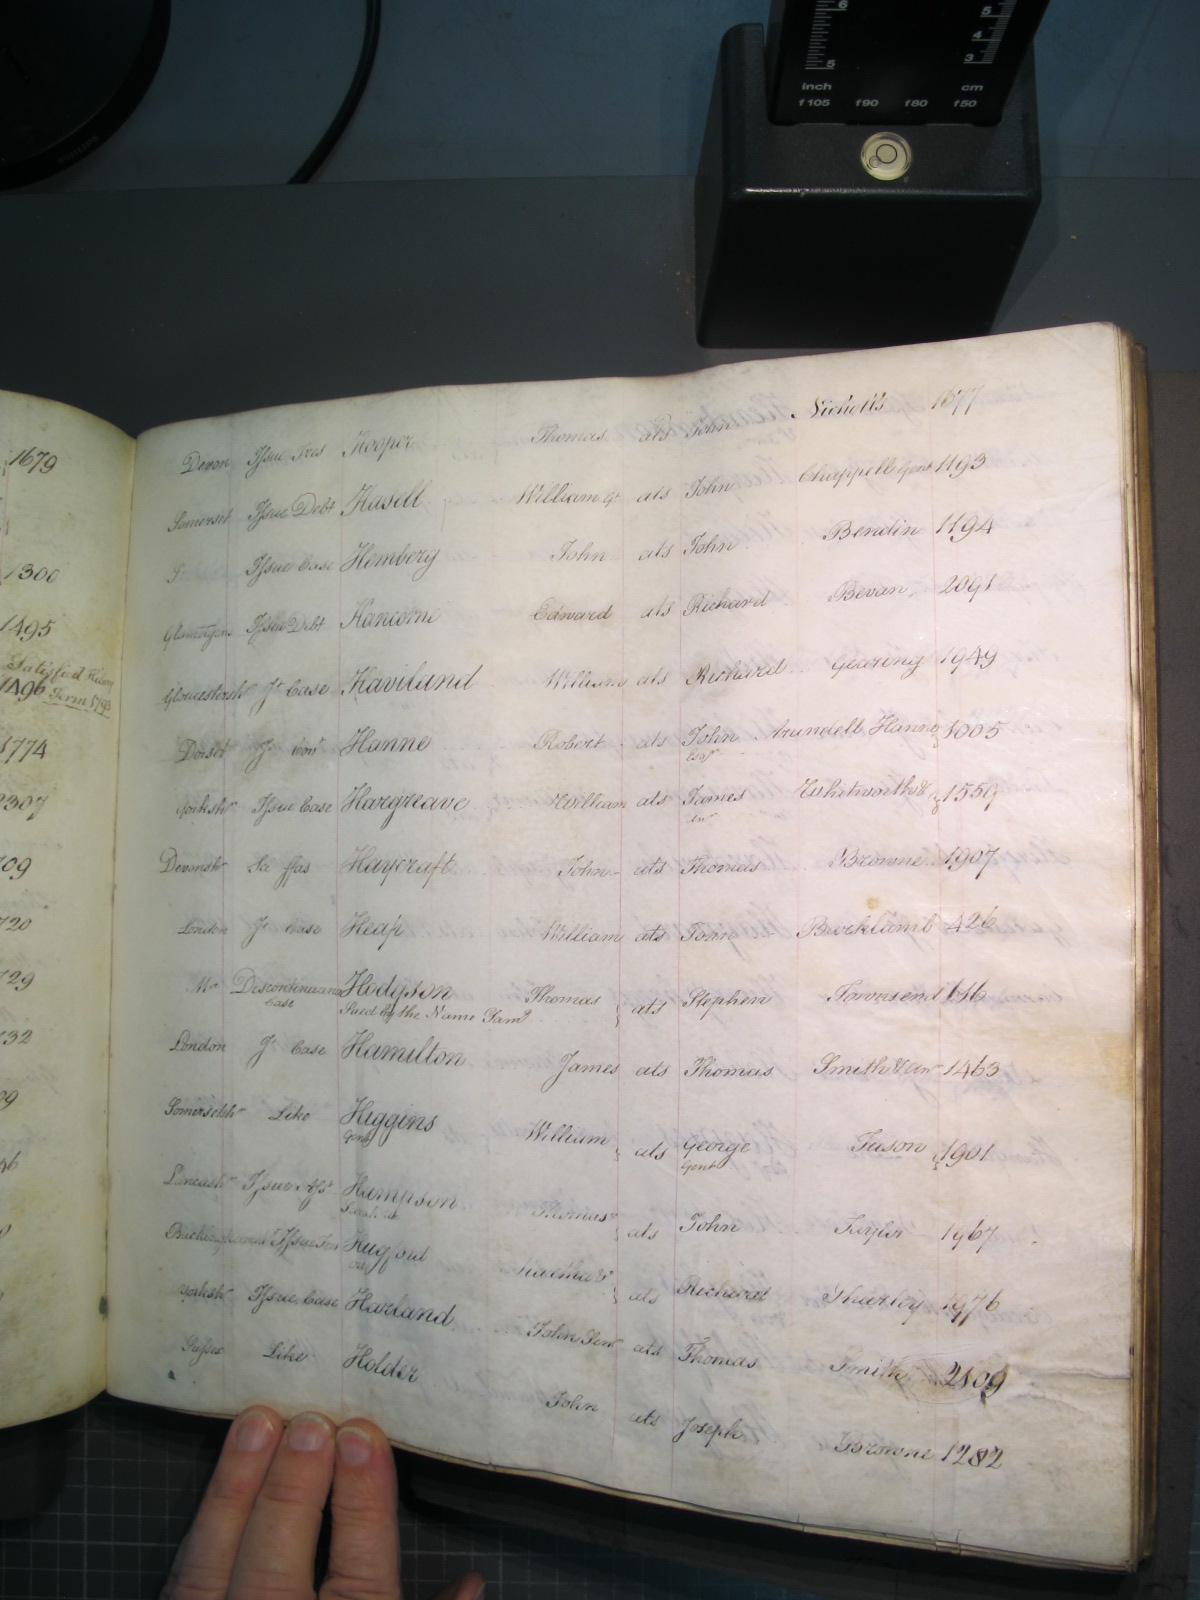 6 5
5 4
3
inch cm
f105 f90 f80 f50
PHILIPS
1679
1300
1495
Satisfied Hilary
1496 Term 1793
1774
2307
09
720
729
732
Devon Issue Tres Hooper Thomas ats John Nicholls 1677
Somerset Issue Debt Hasell William Gt ats John Chappell Gent 1193
Issue Case Hemberg John ats John Bendin 1194
Glamorgan Issue Debt Hancorne Edward ats Richard Bevan 2091
Gloucestersh Jt Case Haviland William ats Richard Geering 1949
Dorset Jt Hanne Robert ats John Arundell Hanne 1005
Esqr
Yorkshr Issue Case Hargreave William ats James Whitworth & 1559
an
Devonshr Sci ffas Haycraft John ats Thomas Browne 1907
London Jt Case Heap William ats John Bucklamb 426
Mx Discontinuance Hodgson Thomas ats Stephen Townsend 656
Case Sued by the Name Saml
London Jt Case Hamilton James ats Thomas Smith & an 1463
Somersetshr Like Higgins William ats George Tuson 1901
Gent Gent
Lancashr Issue Hampson Thomas ats John Taylor 1967
Issue Tres Hugford ats Richard Sharley 1976
Yorkshr Issue Case Harland John Senr ats Thomas Smith 2109
Sussex Like Holder John ats Joseph Browne 1282